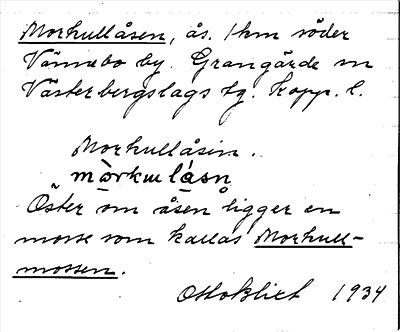 Morkullåsen, ås. 1 km söder
Vännebo by. Grangärde sn
Västerbergslags tg. Kopp. l.
Morkullåsin.
Öster om åsen ligger en
mosse som kallas Morkull-
mossen.
Otto Blixt 1934